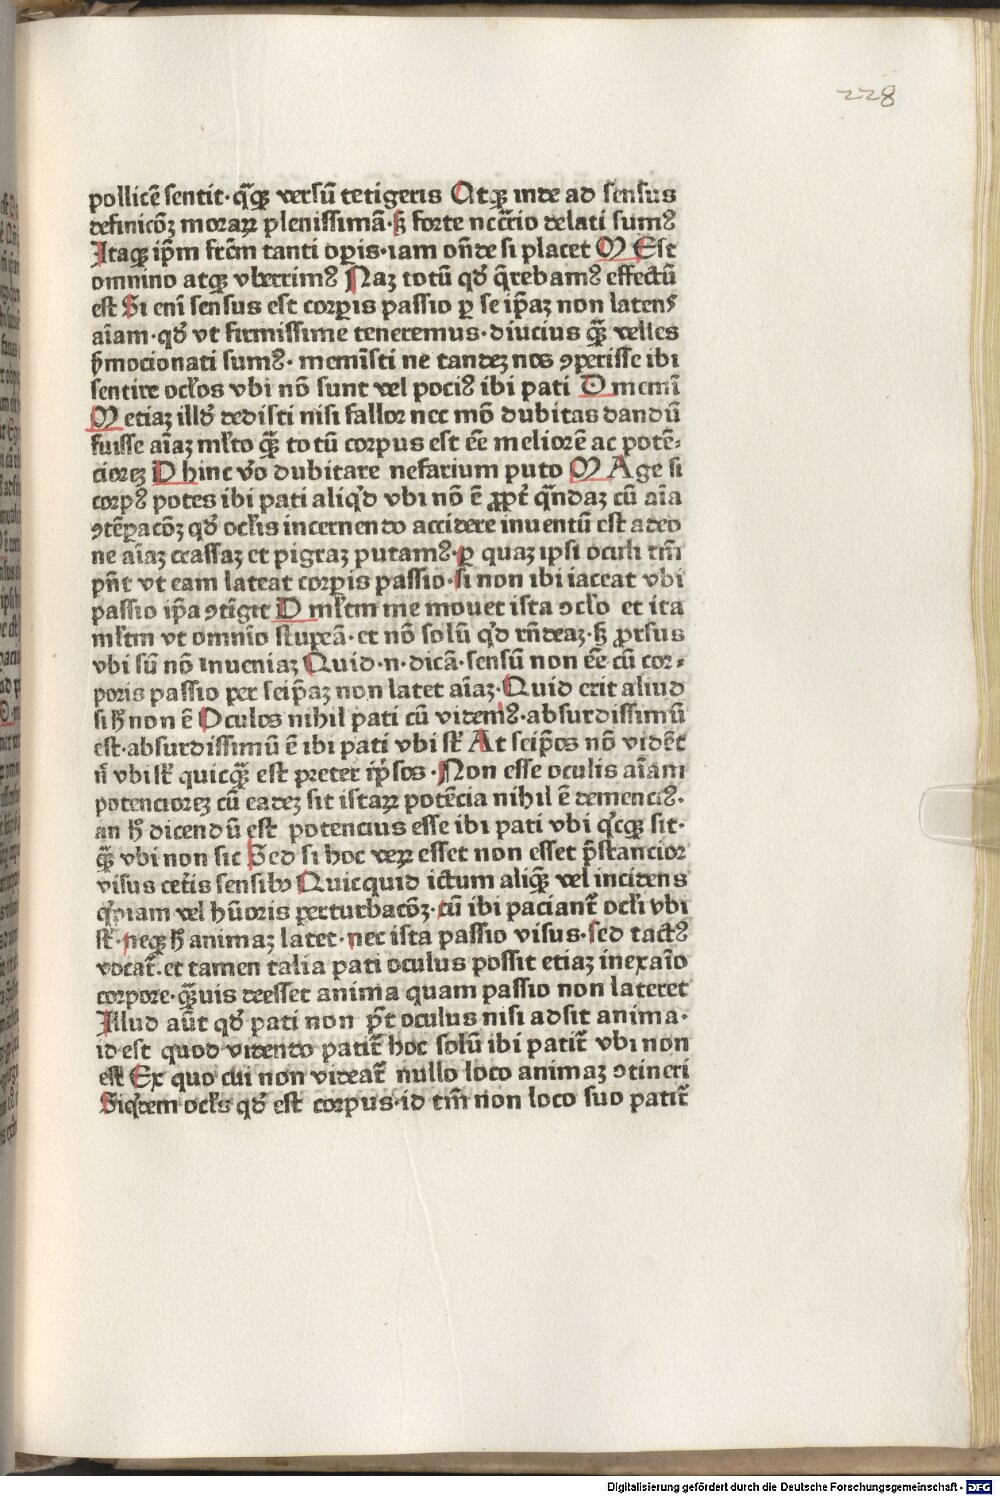 228
pollicē sentit· q̄q̨ versū tetigeris Atq̨ inde ad sensus
definicōꝫ moraꝝ plenissimā· sꝫ forte nccīrio delati sumꝰ
Itaq̨ ip̄m frm̄ tanti opis· iam on̄de si placet M Est
omnino atq̨ vberrimꝰ Naꝫ totū qd̓ q̄rebamꝰ effectū
est Si enī sensus est corꝑis passio ꝑ se ip̄aꝫ non latens
aīam· qd̓ vt firmissime teneremus· diucius q̄ꝫ velles
sermocionati sumꝰ· meministi ne tandeꝫ nos ꝯperisse ibi
sentire ocl̓os vbi nō sunt vel pociꝰ ibi pati D memī
M etiaꝫ illd̓ dedisti nisi fallor nec mō dubitas dandū
fuisse aīaꝫ ml̓to q̄ꝫ totū corpus est ēe meliorē ac potē⸗
ciorēꝫ D hinc v̓o dubitare nefarium puto M Age si
corpꝰ potes ibi pati aliqd̓ vbi nō ē ꝓpt̓ q̄ndaꝫ cū aīa
ꝯtēꝑacōꝫ qd̓ ocl̓is incernendo accidere inuentū est adeo
ne aīaꝫ crassaꝫ et pigraꝫ putamꝰ· ꝑ quaꝫ ipsi oculi tm̄
pn̄t vt eam lateat corꝑis passio· si non ibi iaceat vbi
passio ip̄a ꝯtigit D ml̓tm me mouet ista ꝯcl̓o et ita
ml̓tm vt omnīo stupeā· et nō solū qd̓ rn̄deaꝫ· sꝫ ꝓrsus
vbi sū nō inueniaꝫ Quid· n· dicā· sensū non ēe cū cor⸗
poris passio per seip̄aꝫ non latet aīaꝫ· Quid erit aliud
si h̓ non ē Oculos nihil pati cū videmꝰ· absurdissimū
est· absurdissimū ē ibi pati vbi st̓ At seip̄os nō vidēt
n̄ vbi st̓ quicq̄ꝫ est preter ip̄sos· Non esse oculis aīam
potencioreꝫ cū eadeꝫ sit istaꝝ potēcia nihil ē demenciꝰ·
an h̓ dicendū est potencius esse ibi pati vbi qc̓q̨ sit·
q̄ꝫ vbi non sit Sed si hoc veꝝ esset non esset p̄stancior
visus cet̓is sensibꝫ Quicquid ictum aliq̄ꝫ vel incidens
qp̓iam vel hūoris perturbacōꝫ· cū ibi paciant̓ ocl̓i vbi
st̓· neq̨ h̓ animaꝫ latet· nec ista passio visus· sed tactꝰ
vocat̓· et tamen talia pati oculus possit etiaꝫ inexaīo
corpore· q̄ꝫuis deesset anima quam passio non lateret
Illud aūt qd̓ pati non pt̄ oculus nisi adsit anima·
id est quod videndo patit̓ hoc solū ibi patit̓ vbi non
est Ex quo cui non videat̓ nullo loco animaꝫ ꝯtineri
Siqd̓em ocl̓s qd̓ est corpus· id tm̄ non loco suo patit̓
Digitalisierung gefördert durch die Deutsche Forschungsgemeinschaft · DFG